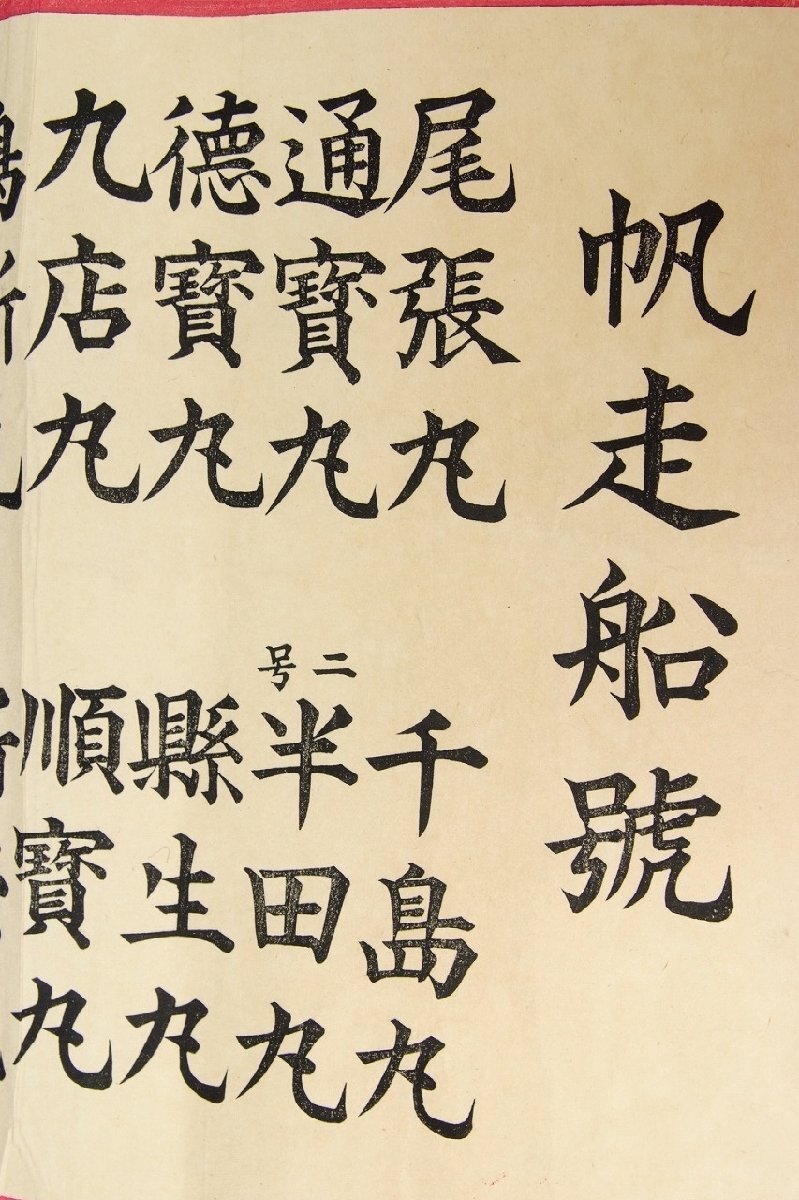 帆走船號
尾張丸
千島丸
通寳丸
二号
半田丸
德寳丸
縣生丸
九店丸
順寳丸